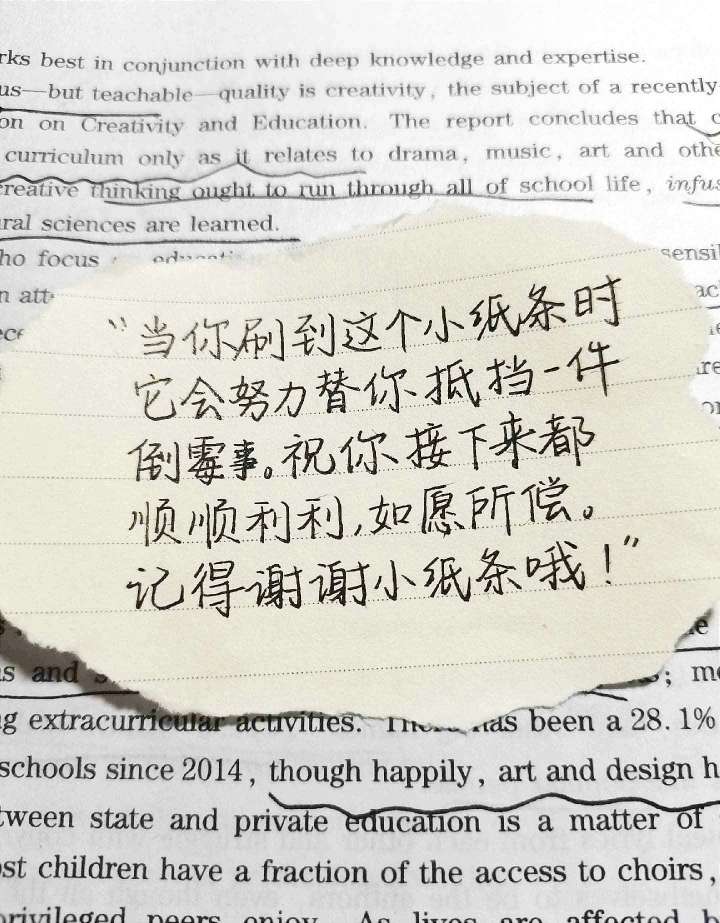 rks best in conjunction with deep knowledge and expertise.
us—but teachable—quality is creativity, the subject of a recently
on on Creativity and Education. The report concludes that c
curriculum only as it relates to drama, music, art and othe
creative thinking ought to run through all of school life, infus
ral sciences are learned.
ho focus
sensi
n att
“当你刷到这个小纸条时
它会努力替你抵挡一件
倒霉事。祝你接下来都
顺顺利利,如愿所偿。
记得谢谢小纸条哦!”
as and
; m
g extracurricular activities. There has been a 28.1%
schools since 2014, though happily, art and design h
tween state and private education is a matter of
ost children have a fraction of the access to choirs,
privileged peers enjoy. As lives are affected